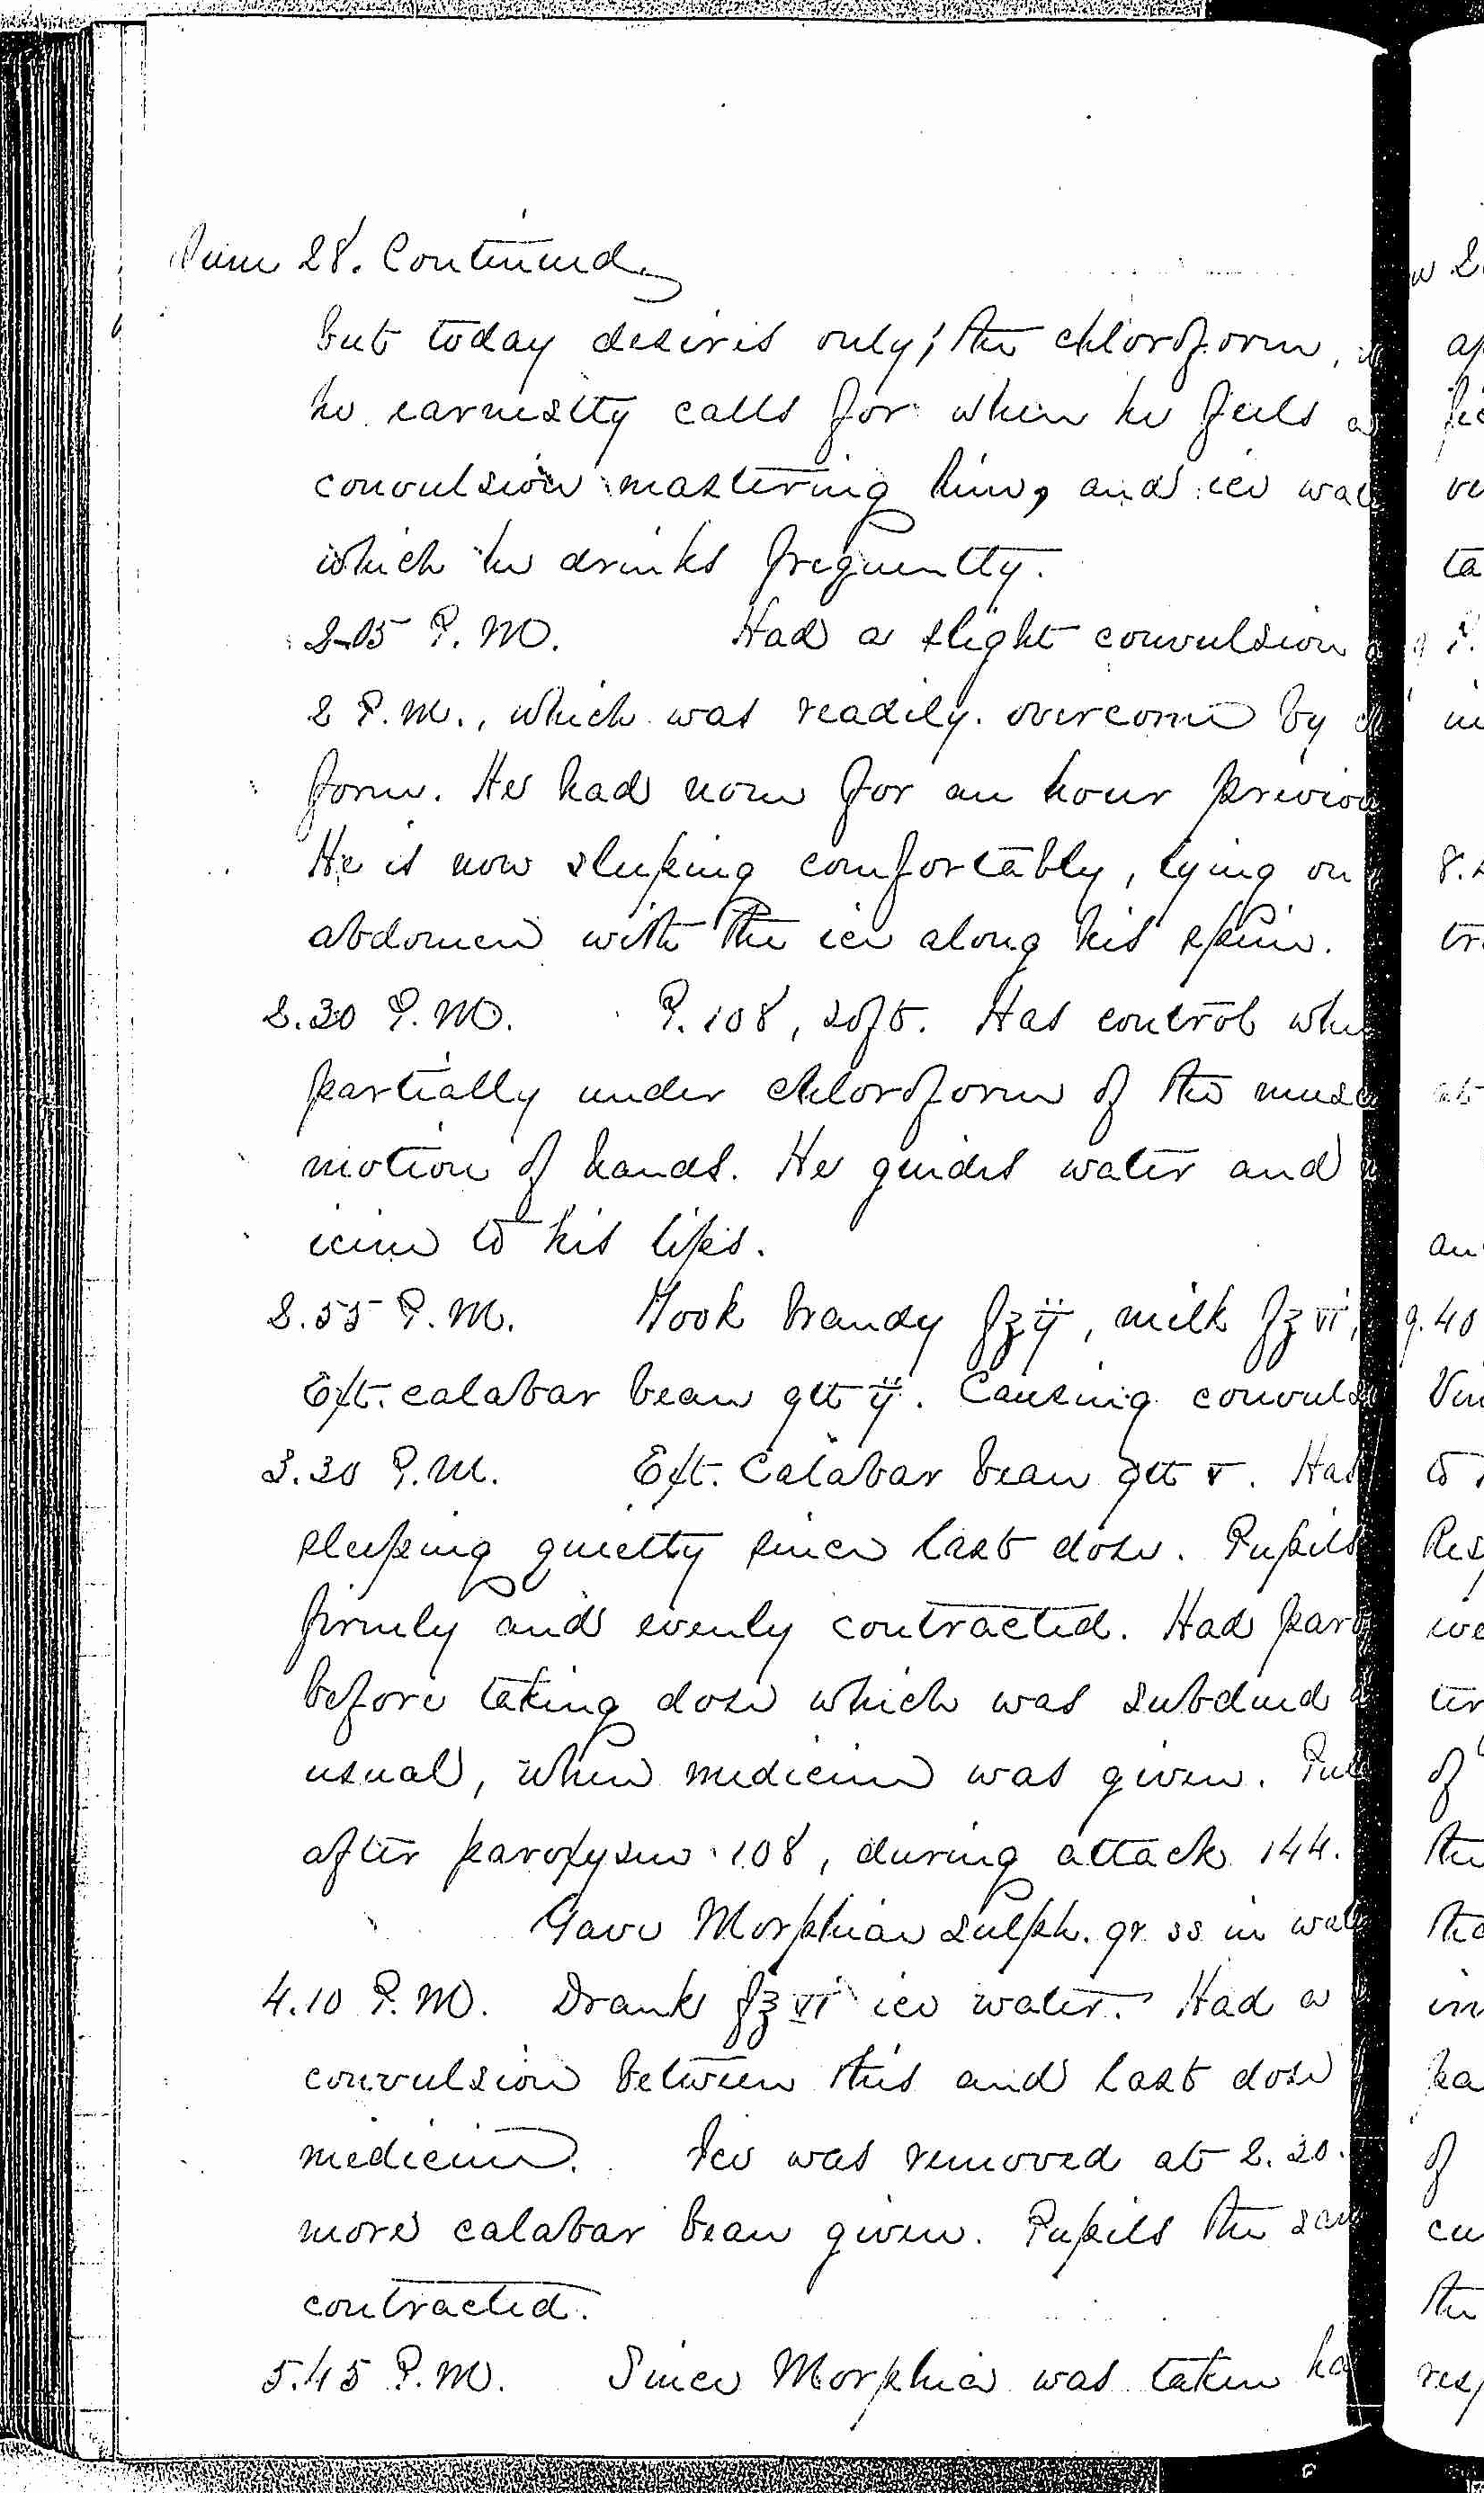 June 28. Continued
but today desires only, the chloroform,
he earnestly calls for when he feels a
convulsion mastering him, and ice wat
which he drinks frequently.
2.05 P.M. Had a slight convulsion
2 P.M., which was readily overcome by
form. He had none for an hour previou
He is now sleeping comfortably, lying on
abdomen with the ice along his spine.
2.30 P.M. P. 108, soft. Has control whe
partially under chloroform of the musc
motion of hands. He guides water and
icine to his lips.
2.55 P.M. Took brandy f℥ij, milk f℥vi,
Ext. calabar bean gtt ij. Causing convuls
3.30 P.M. Ext. Calabar bean gtt v. Has
sleeping quietly since last dose. Pupils
firmly and evenly contracted. Had paro
before taking dose which was subdued
usual, when medicine was given. Pul
after paroxysm 108, during attack 144.
Gave Morphiae Sulph. gr ss in wate
4.10 P.M. Drank f℥vi ice water. Had a
convulsion between this and last dose
medicine. Ice was removed at 2.20.
more calabar bean given. Pupils the sam
contracted.
5.45 P.M. Since Morphia was taken ha